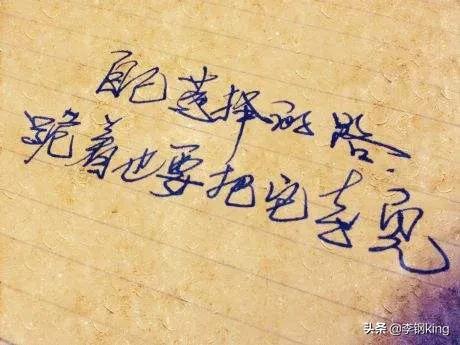 自己选择的路.
跪着也要把它走完
头条 @李钢king